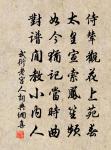 侍輦觀花上苑春
太皇宣索鳳笙頻
如今猶記當時曲
對譜閒教小內人
武衍老宮人詞